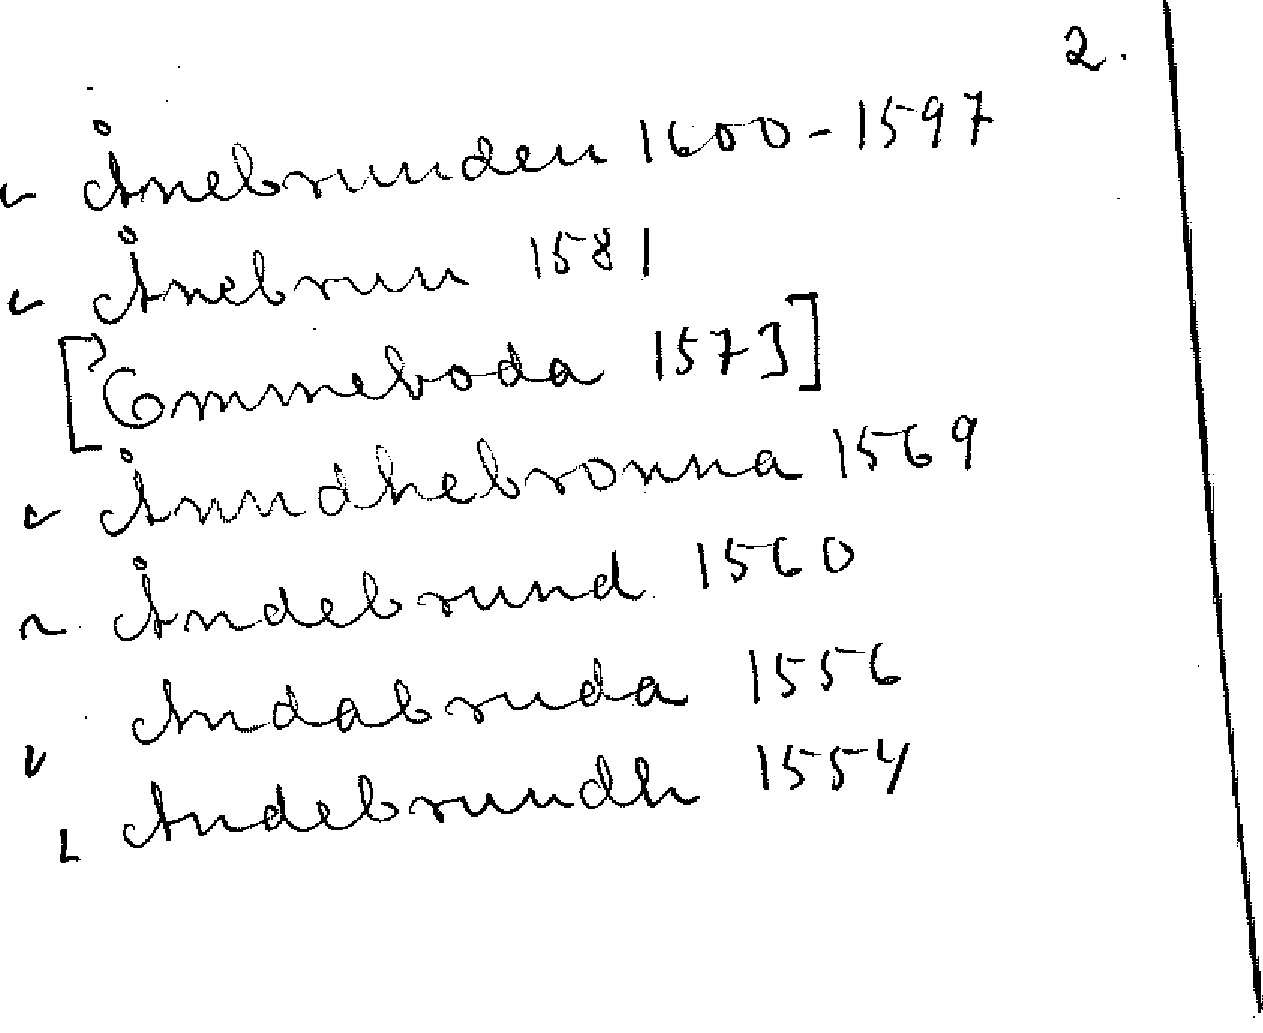 2.
Ånebrunden 1600-1597
Ånebrunn 1581
[Emmeboda 1573]
Ånndhebronna 1569
Åndebrund 1560
Andabruda 1556
Andebrundh 1554